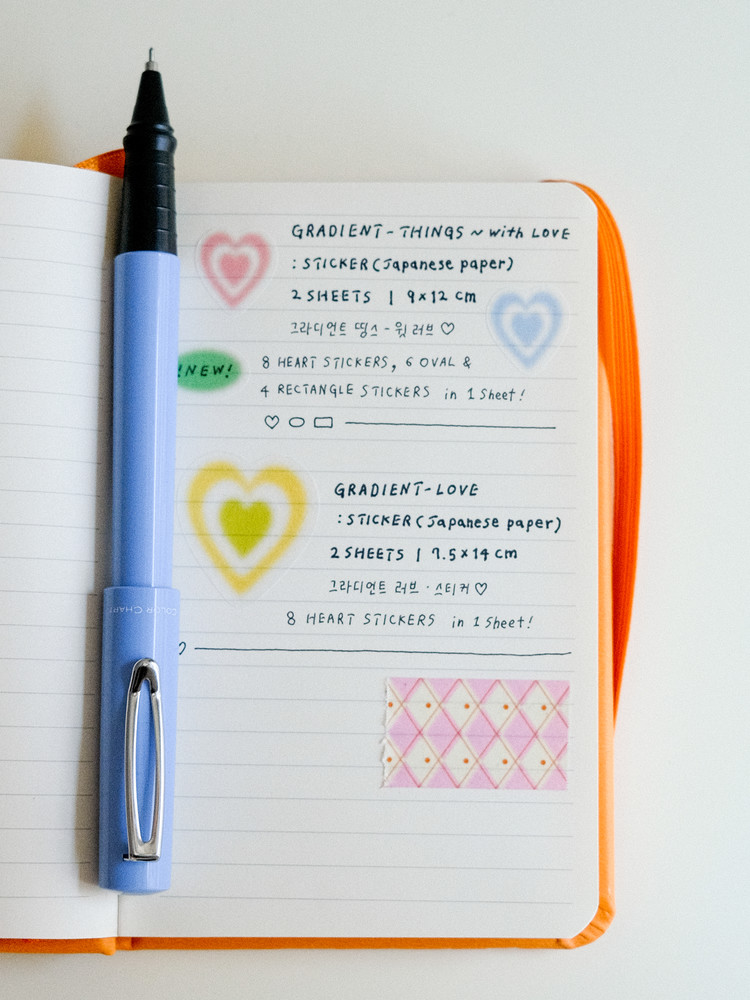 GRADIENT-THINGS ~ with LOVE
: STICKER (Japanese paper)
2 SHEETS | 9×12 cm
그라디언트 띵스 - 윗 러브 ♡
!NEW!
8 HEART STICKERS, 6 OVAL &
4 RECTANGLE STICKERS in 1 Sheet!
GRADIENT-LOVE
: STICKER (Japanese paper)
2 SHEETS | 7.5×14 cm
그라디언트 러브 · 스티커 ♡
8 HEART STICKERS in 1 Sheet!
COLOR CHART